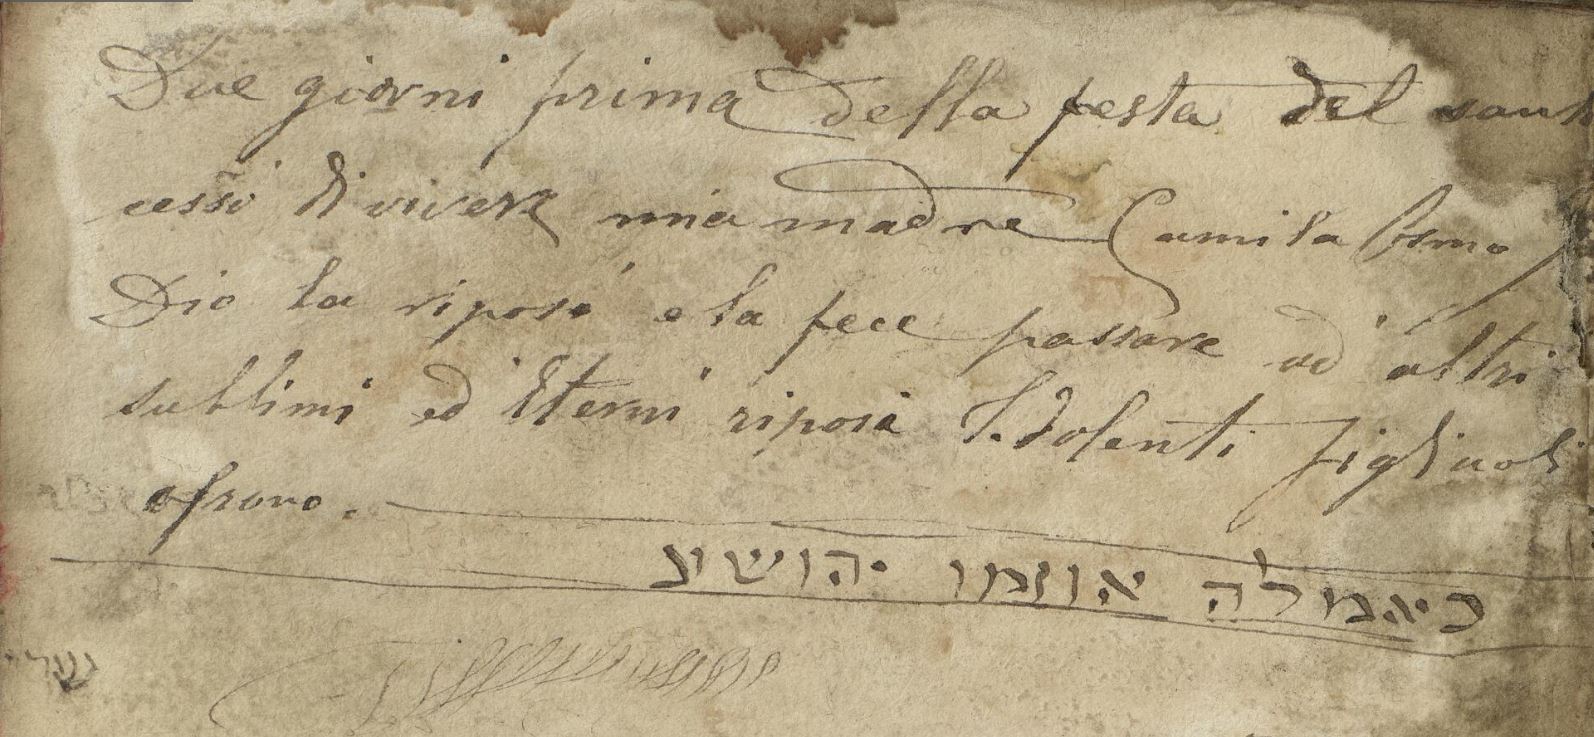 Due giorni prima della festa del sant
cessò di vivere mia madre Camila Osmo
Dio la riposi e la fece passare ad altri
sublimi ed Eterni riposi I dolenti figliuoli
יהושע